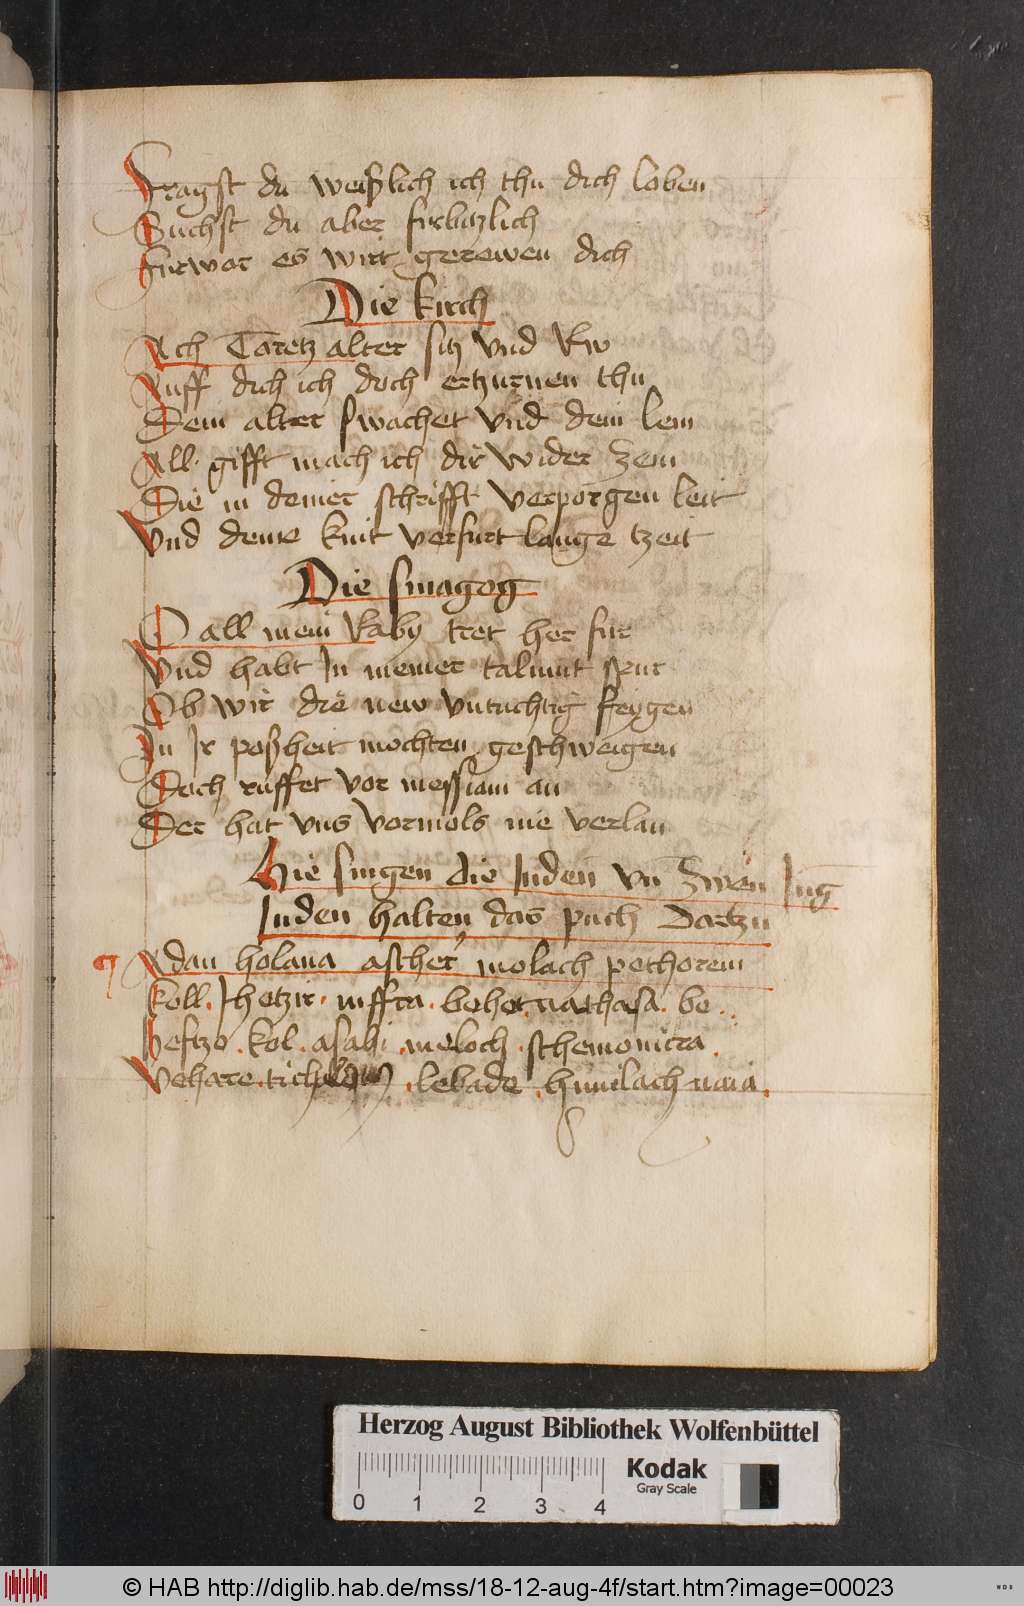 Fragst du weißlich ich thu dich loben
Suchst du aber firbitzlich
Furwor es wirt gerewen dich
Die kirch
Ach Caretz alter sitz vnd Rw
Auff dich ich doch ertzurnen thu
Dein alter swachet vnd dein lem
All gifft mach ich dir wider zem
Die in deiner schrifft verporgen leit
Vnd deine kint verfurt lange tzeit
Die sinagog
O all mein Raby tret her fur
Vnd habt In meiner talmut spur
Ob wir die new vntuchtig feygen
In Ir poßheit mochten geschweigen
Doch ruffet vor messiam an
Der hat vns vormols nie verlan
Hie singen die Juden vn Zwen Jung
Juden halten das puch Dartzu
Adan holana ascher molach pethorem
koll Jhetzir niffra beher nathasa be
heftzo kol asahi meloch schemonicra
Vehare lebade himilach naia
Herzog August Bibliothek Wolfenbüttel
Kodak
Gray Scale
0 1 2 3 4
© HAB http://diglib.hab.de/mss/18-12-aug-4f/start.htm?image=00023